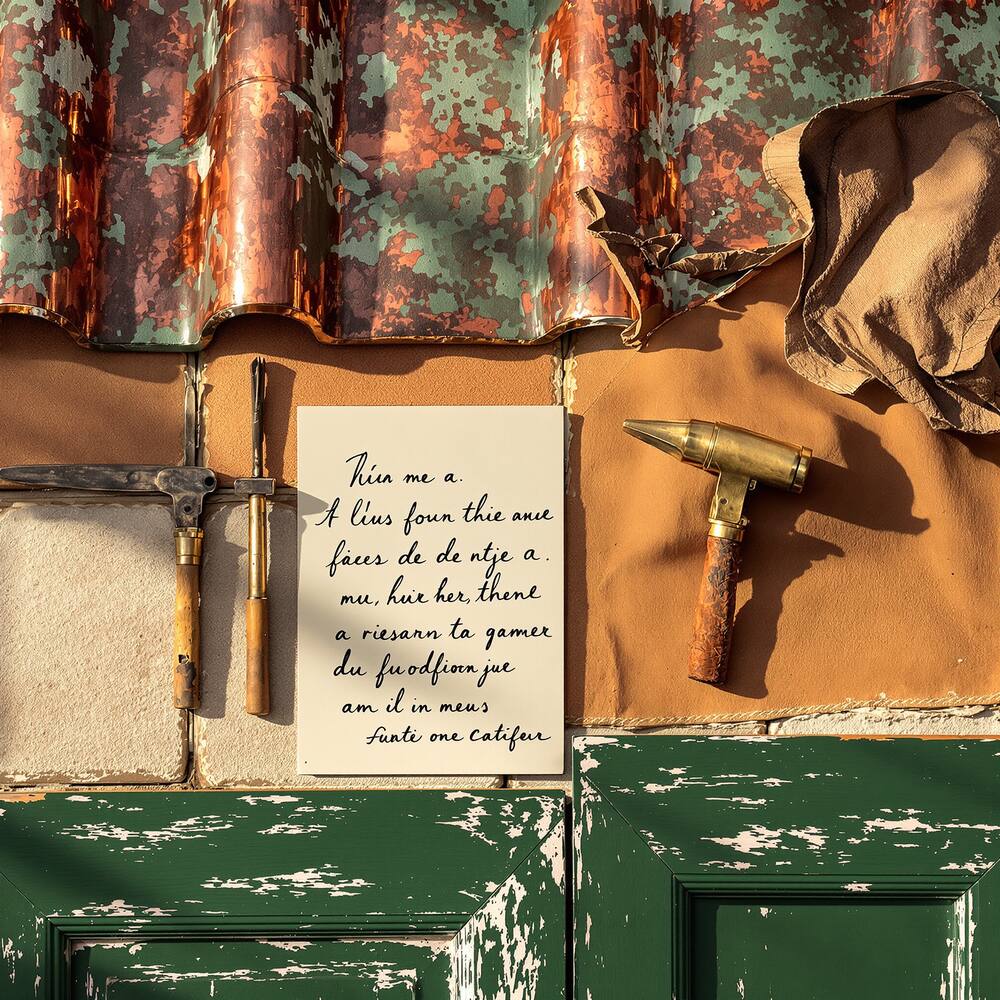 Núin me a.
A líus foun thie ane
fáces de de ntje a.
mu, huir her, thenl
a riesarn ta gamer
du fuodfiorn jue
am il in meus
funtē one Catifeur